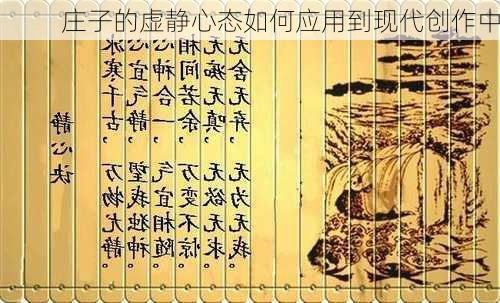 庄子的虚静心态如何应用到现代创作中
静心诀
冰寒千古,万物尤静。
心宜气静,望我独神。
心神合一,气宜相随。
相间若余,万变不惊。
无痴无嗔,无欲无求。
无舍无弃,无为无我。